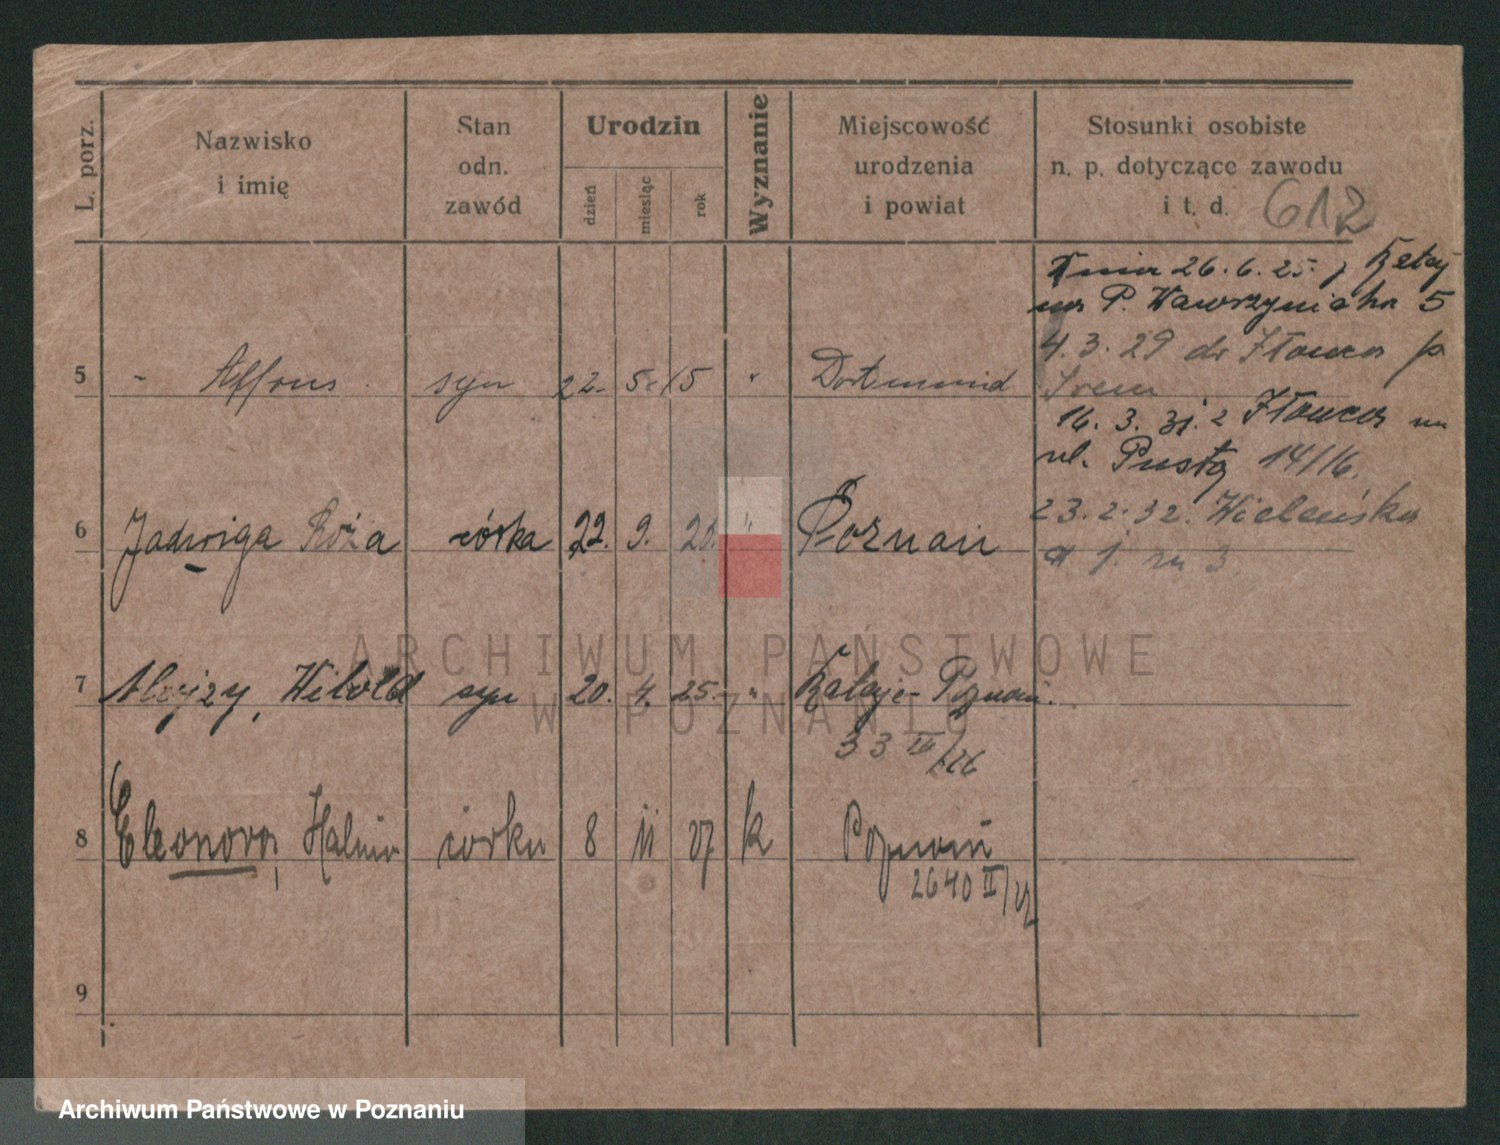 L. porz.
Nazwisko
i imię
Stan
odn.
zawód
Urodzin
dzień
miesiąc
rok
Wyznanie
Miejscowość
urodzenia
i powiat
Stosunki osobiste
n. p. dotyczące zawodu
i t. d.
612
Dnia 26.6.25. z
na P. Wawrzyniaka 5
4.3.29 do Iłowca p
Śrem
5 - Alfons syn 22. 5. 15 " Dortmund
16. 3. 31. z Iłowca na
ul. Pustą 14/16.
6 Jadwiga Róża córka 22. 9. 20. " Poznań
23.2.32. Wieleńska
3
7 Alojzy, Witold syn 20. 4. 25. " Rataje - Poznań.
33 IV/26
8 Eleonora, Halina córka 8 11 27 k Poznań
2640 II/27
9
ARCHIWUM PAŃSTWOWE
W POZNANIU
Archiwum Państwowe w Poznaniu